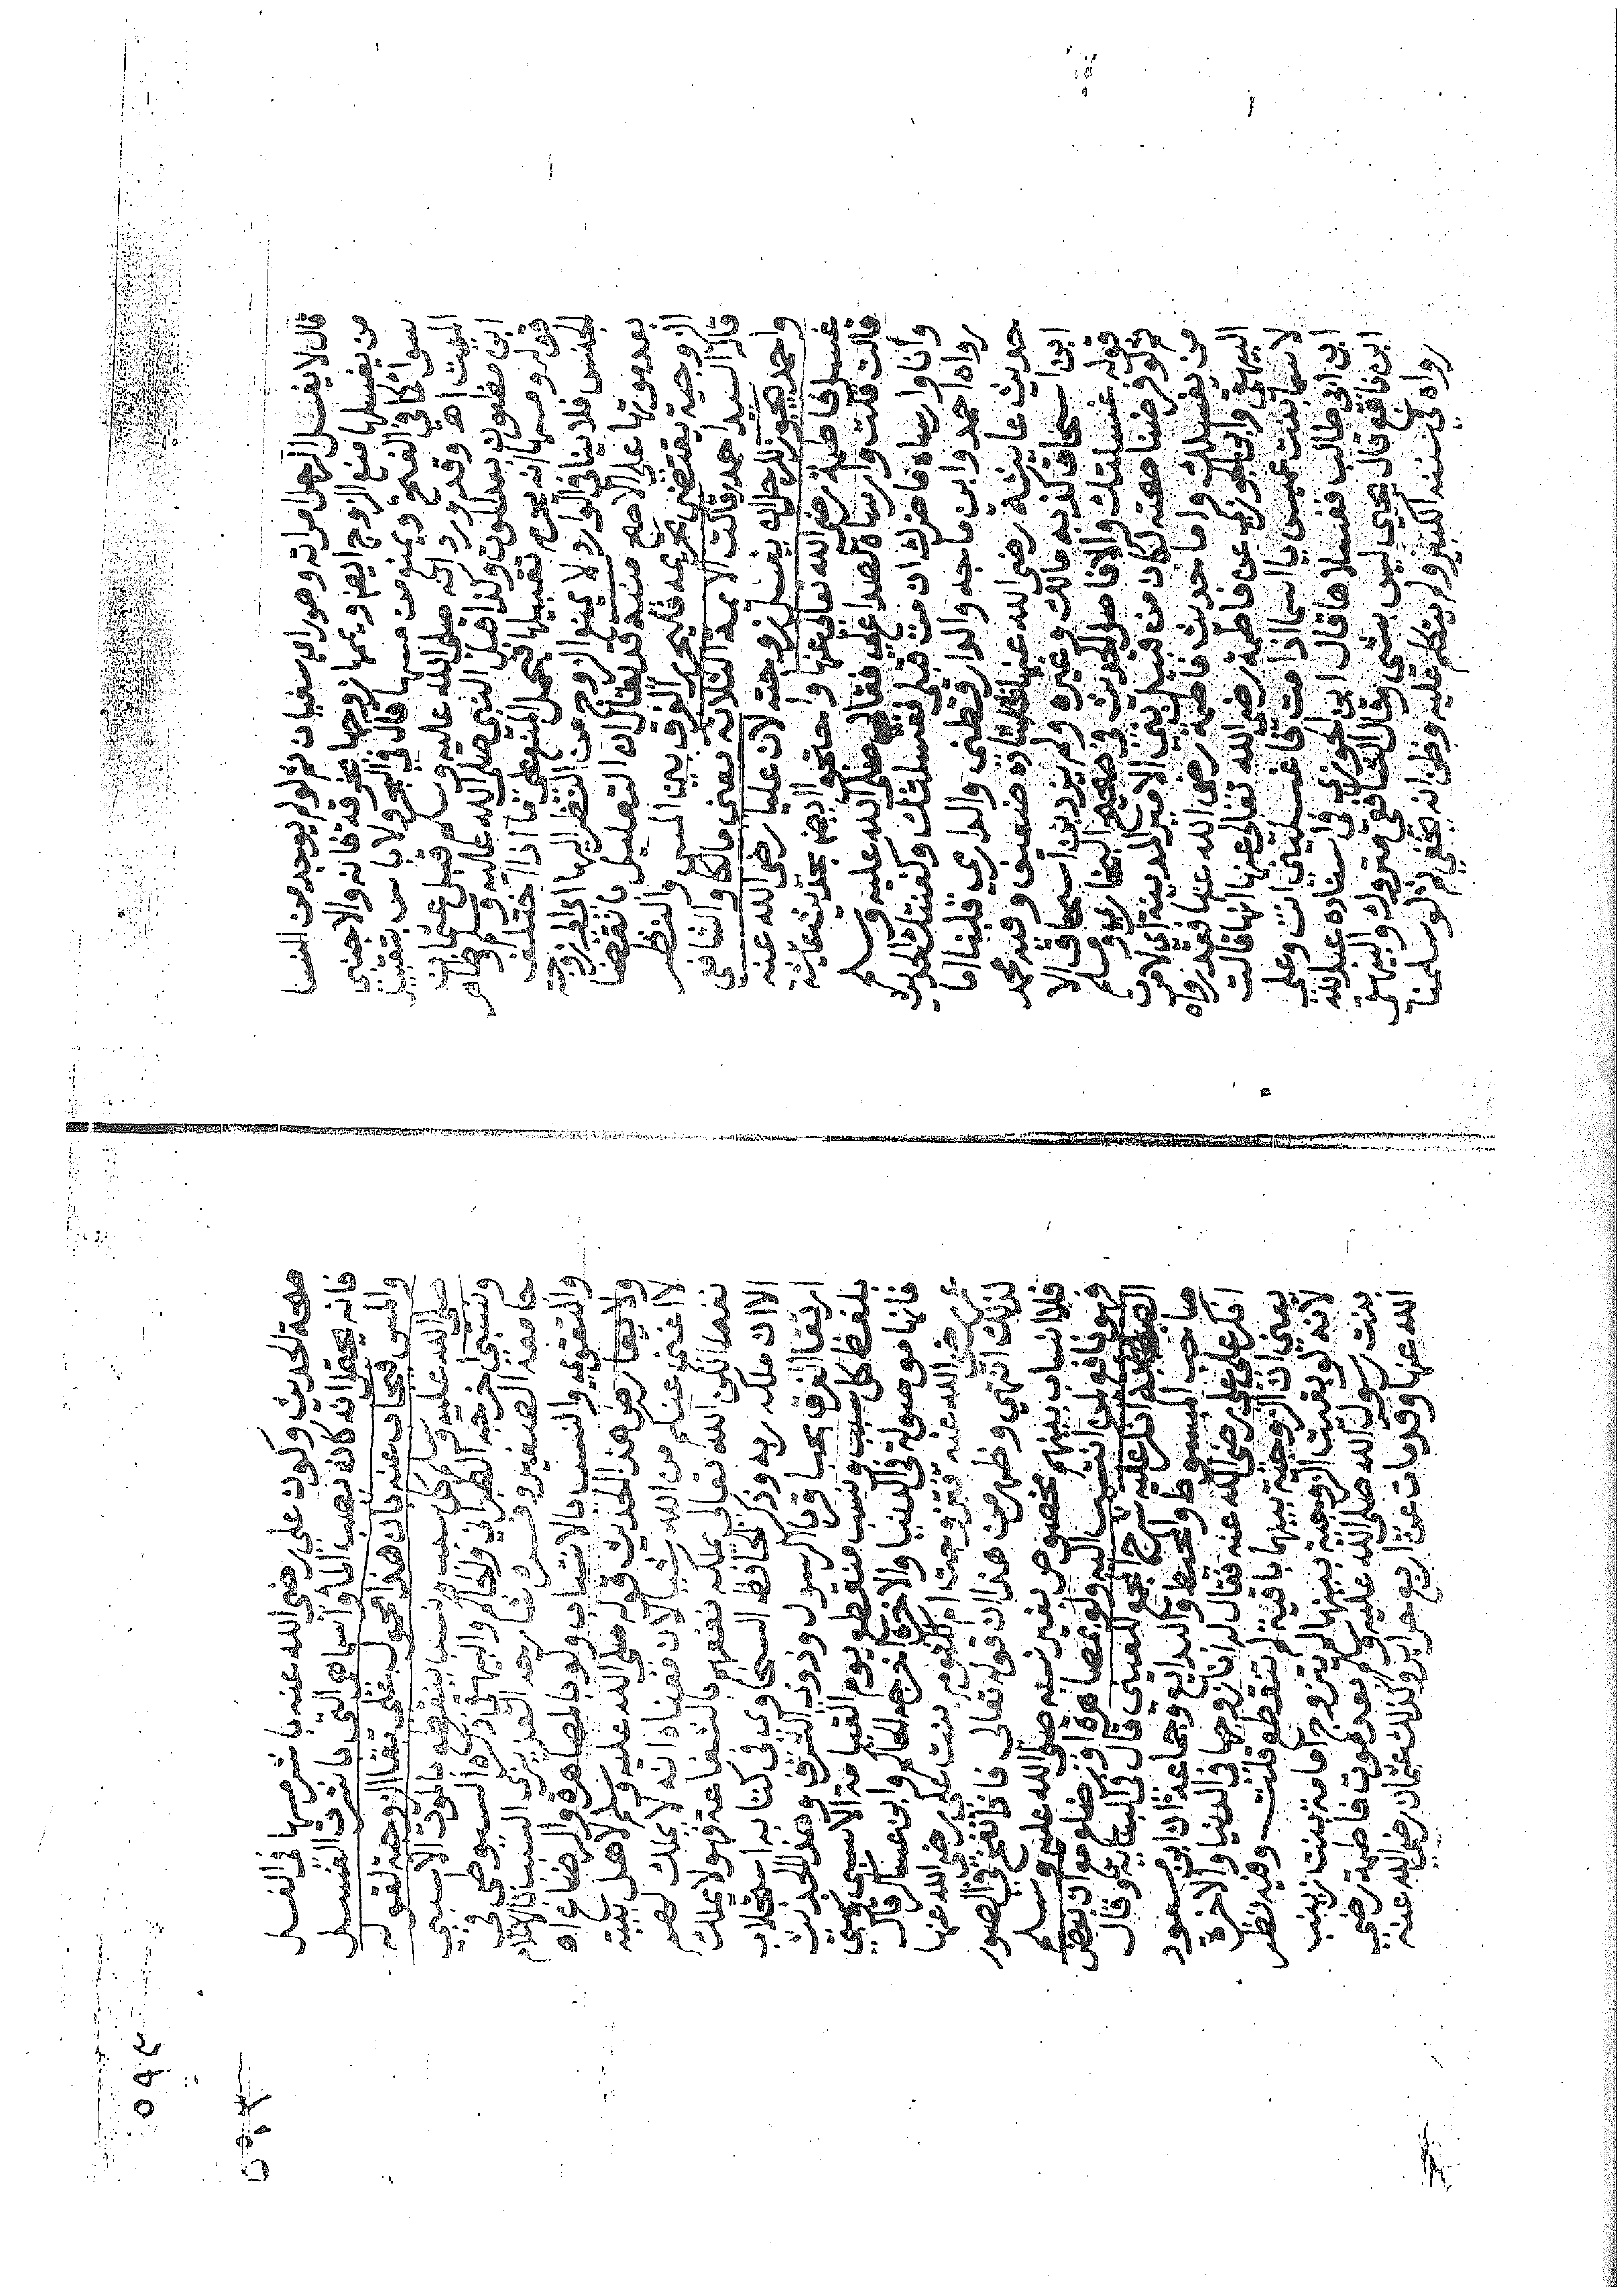 قال لا يغسل الرجل امراته وهو راي سفيان ثم لو لم يوجد من النسا
من يغسلها منع الزوج ايضا ويممها زوجها بخرقة فانه والاجنبي
سواء كما في الفتح ويمنع من مسها قال في البحر ولا باس بتقبيل
الميت اهـ وقد ورد انه صلى الله عليه وسلم قبل عثمان
ابن مظعون بعد الموت وكذا قبل النبي صلى الله عليه وسلم وظاهر
قوله ومسها انه يحرم تقبيلها فيحمل المنع على ما اذا اختلف
الجنس فلا ينافي الوارد ولا يمنع الزوج من النظر اليها اي الى زوجته
بعد موتها على الاصح منية قد يقال ان التعليل بانقضا
الزوجية يقتضي تحريمه فليحرر الفرق بين المس والنظر
قاله السيد احمد وقالت الائمة الثلاثة يعني مالكا والشافعي
واحمد يجوز للرجل ان يغسل زوجته لان عليا رضي الله عنه
غسل فاطمة رضي الله تعالى عنها واحتجوا ايضا بحديث عايشة
قالت قلت وارساه لصداع بي فقال صلى الله عليه وسلم
وانا وارساه ما ضرك ان مت قبلي فغسلتك وكفنتك الحديث
رواه احمد وابن ماجه والدارقطني والدارمي قلنا اما
حديث عايشة رضي الله عنها فاسناده ضعيف وفيه محمد
ابن اسحاق كذبه مالك وغيره ولم يزد ابن اسحاق الا
قوله غسلتك والا فاصل الحديث في صحيح البخاري ومسلم
ثم لو فرضنا صحته لكان من قبيل بنى الامير المدينة اي لامرت
من يغسلك واما حديث فاطمة رضي الله عنها فقد رواه
البيهقي وابن الجوزي عن فاطمة رضي الله تعالى عنها انها قالت
لاسما بنت عميس يا اسما اذا مت فاغسليني انت وعلي
ابن ابي طالب فغسلاها قال ابن الجوزي في اسناده عبد الله
ابن نافع قال يحيى ليس بشي وقال النسائي متروك والبيهقي
رواه في سننه الكبير ولم يتكلم عليه وظن انه يخفى ثم لو سلمنا
صحة الحديث وكون علي رضي الله عنه باشر مسها في الغسل
فانه يحتمل انه كان يصب الماء واسما هي التي باشرت الغسل
والمس فيجاب عنه بان هذا محمول على بقا الزوجية لقوله
صلى الله عليه وسلم كل سبب ونسب ينقطع بالموت الا سببي
ونسبي اخرجه الطبراني والحاكم والبيهقي ذكره السيوطي في
جامعه الصغير وفسر شارحه العزيزي السبب بالاسلام
والتقوى والنسب بالانتساب ولو بالمصاهرة والرضاع اهـ
ولا يعارض هذا الحديث قوله صلى الله عليه وسلم لاهل بيته
لا اغني عنكم من الله شيا لان معناه انه لا يملك لهم
نفعا لكن الله تعالى يملكه نفعهم بالشفاعة فهو لا يملك
الا ان ملكه ربه وذكر الحافظ السخاوي في كتابه استجلاب
ارتقا الغرف بحب اقربا الرسول وذوي الشرف وهذا الحديث
بلفظ كل سبب ونسب منقطع يوم القيامة الا سببي ونسبي
فانها موصولة في الدنيا والاخرة اخرجه الحاكم وابن عساكر قال
عمر رضي الله عنه فتزوجت ام كلثوم بنت علي رضي الله عنها
لذلك انتهى وظهر من هذا ان قوله تعالى فاذا نفخ في الصور
فلا انساب بينهم مخصوص بغير نسبه صلى الله عليه وسلم
وهو نافع لمن انتسب اليه ولو بمصاهرة او رضاع مع ان بعض
الصحابة انكر عليه شرح المجمع للعيني قال في العناية وقال
صاحب المبسوط والمحيط والبدايع وجماعة ان ابن مسعود
انكر على علي رضي الله عنه فقال له انها زوجتي في الدنيا والاخرة
يعني ان الزوجية بينهما باقية لم تنقطع قلت وفيه نظر
لانه لو بقيت الزوجية بينهما لم يتزوج امامة بنت زينب
بنت رسول الله صلى الله عليه وسلم بعد موت فاطمة رضي
الله عنها وقد مات عن اربع حراير وكذلك عثمان رضي الله عنه